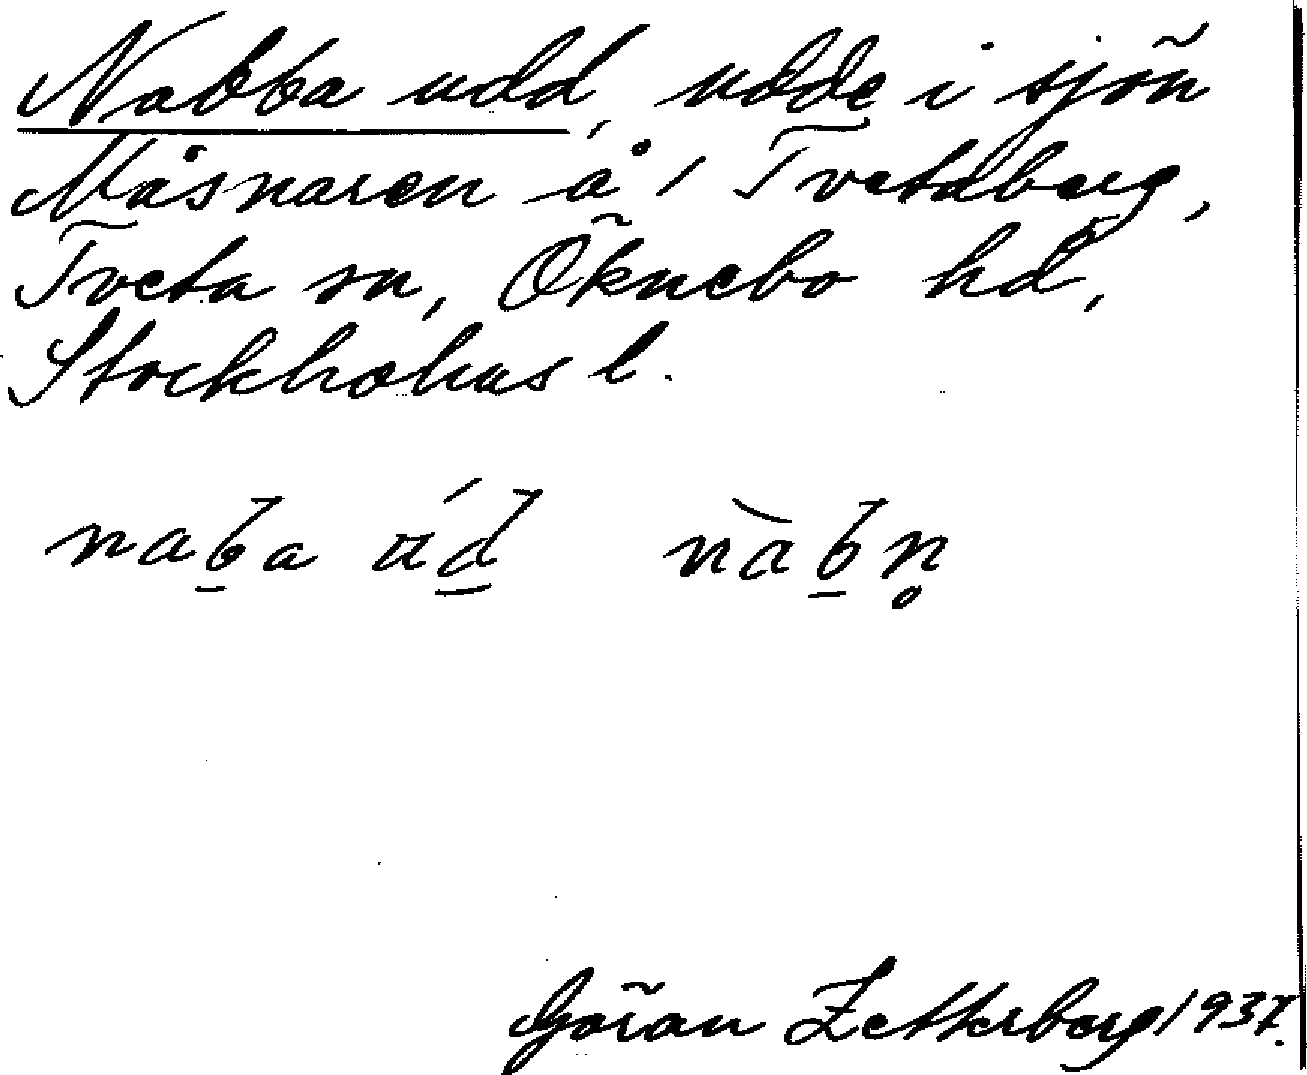 Nabba udd, udde i sjön
Måsnaren å 1 Tvetaberg,
Tveta sn, Öknebo hd,
Stockholms l.
naba ud nàbn̥
Göran Zetterberg 1937.